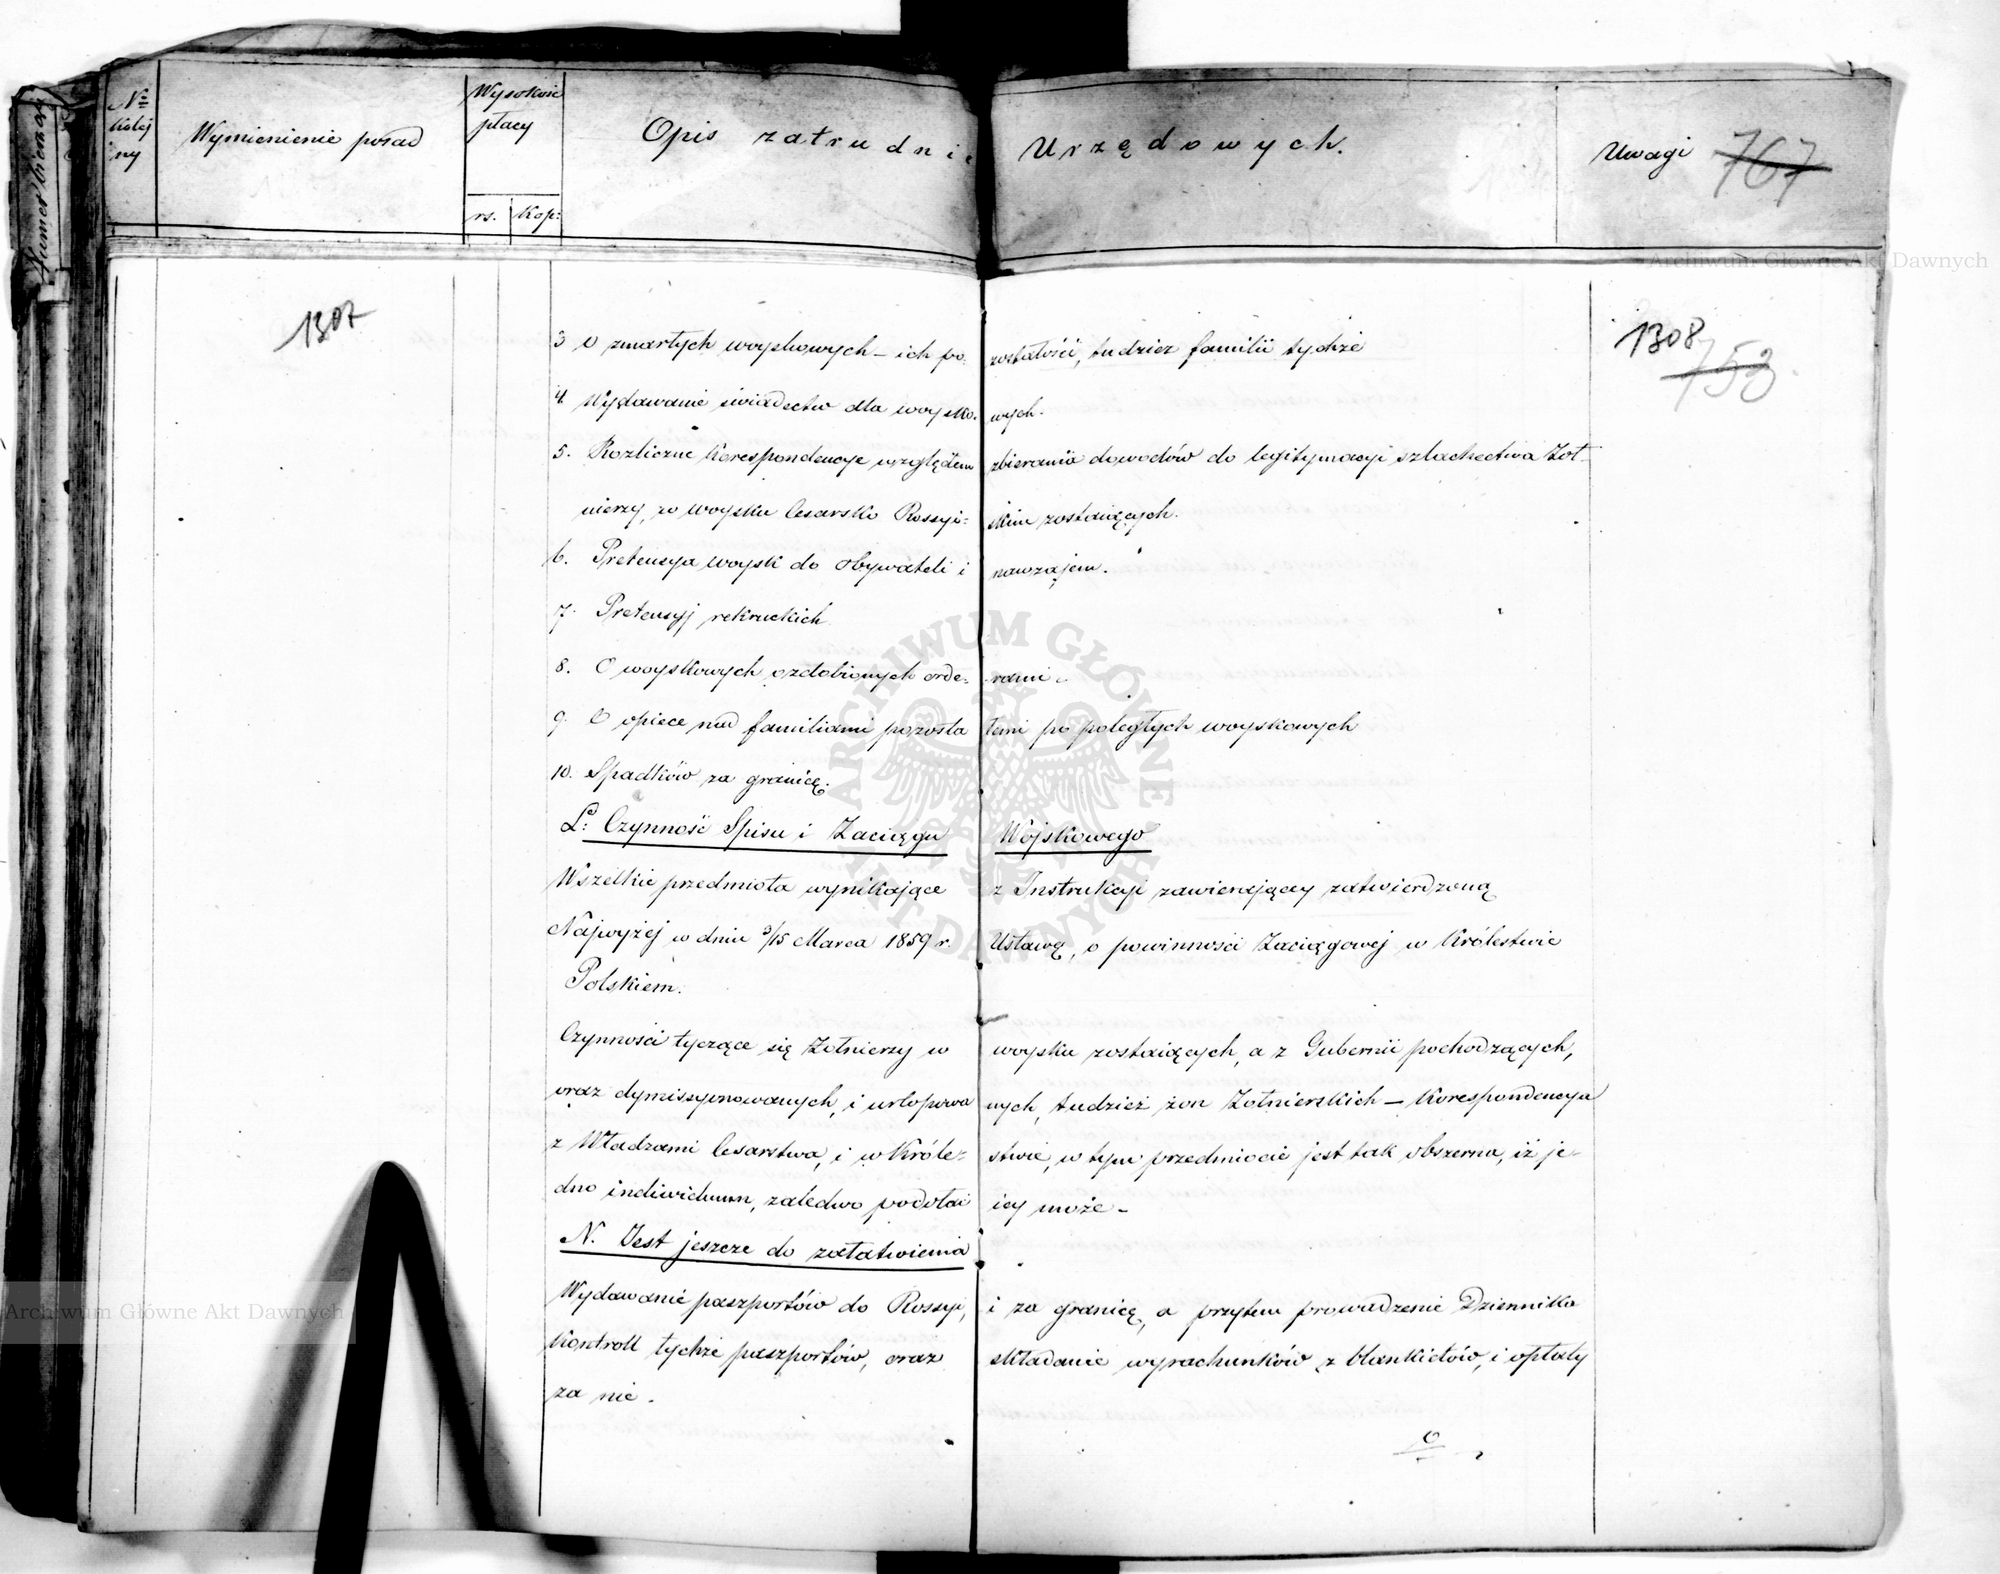 № kolejny
Wymienienie posad
Wysokość płacy
rs. Kop:
Opis zatrudnie Urzędowych.
Uwagi
767
1307
1308
753
3 O zmarłych woyskowych – ich po: zostałości, tudzież familii tychże
4. Wydawanie świadectw dla woysko. wych.
5. Rozliczne korespondencye względem zbierania dowodów do legitymacyi szlachectwa Żoł-
nierzy, w woysku Cesarsko Rossyi: skim zostaiących.
6. Pretensya woysk do obywateli i nawzajem.
7. Pretensyj rekruckich
8. O woyskowych ozdobionych orde: rami.
9. O opiece nad familiami pozosta łemi po poległych woyskowych
10. Spadków za granicę.
L: Czynność Spisu i Zaciągu Wojskowego
Wszelkie przedmiota wynikające z Instrukcyi zawierającey zatwierdzoną
Najwyżej w dniu 3/15 Marca 1859 r. Ustawę, o powinności Zaciągowej w Królestwie
Polskiem.
Czynności tyczące się Żołnierzy w woysku zostaiących, a z Gubernii pochodzących,
oraz dymissyonowanych, i urlopowa nych, tudzież żon Żołnierskich – Korespondencya
z Władzami Cesarstwa, i w Króle: stwie, w tym przedmiocie jest tak obszerna, iż je-
dno indiwiduum, zaledwo podołać iey może –
N. Jest jeszcze do załatwienia
Wydawanie paszportów do Rossyi, i za granicę, a przytem prowadzenie Dziennika
Kontroll tychże paszportów, oraz składanie wyrachunków z blankietów, i opłaty
za nie.
Archiwum Główne Akt Dawnych
Archiwum Główne Akt Dawnych
ARCHIWUM GŁÓWNE AKT DAWNYCH